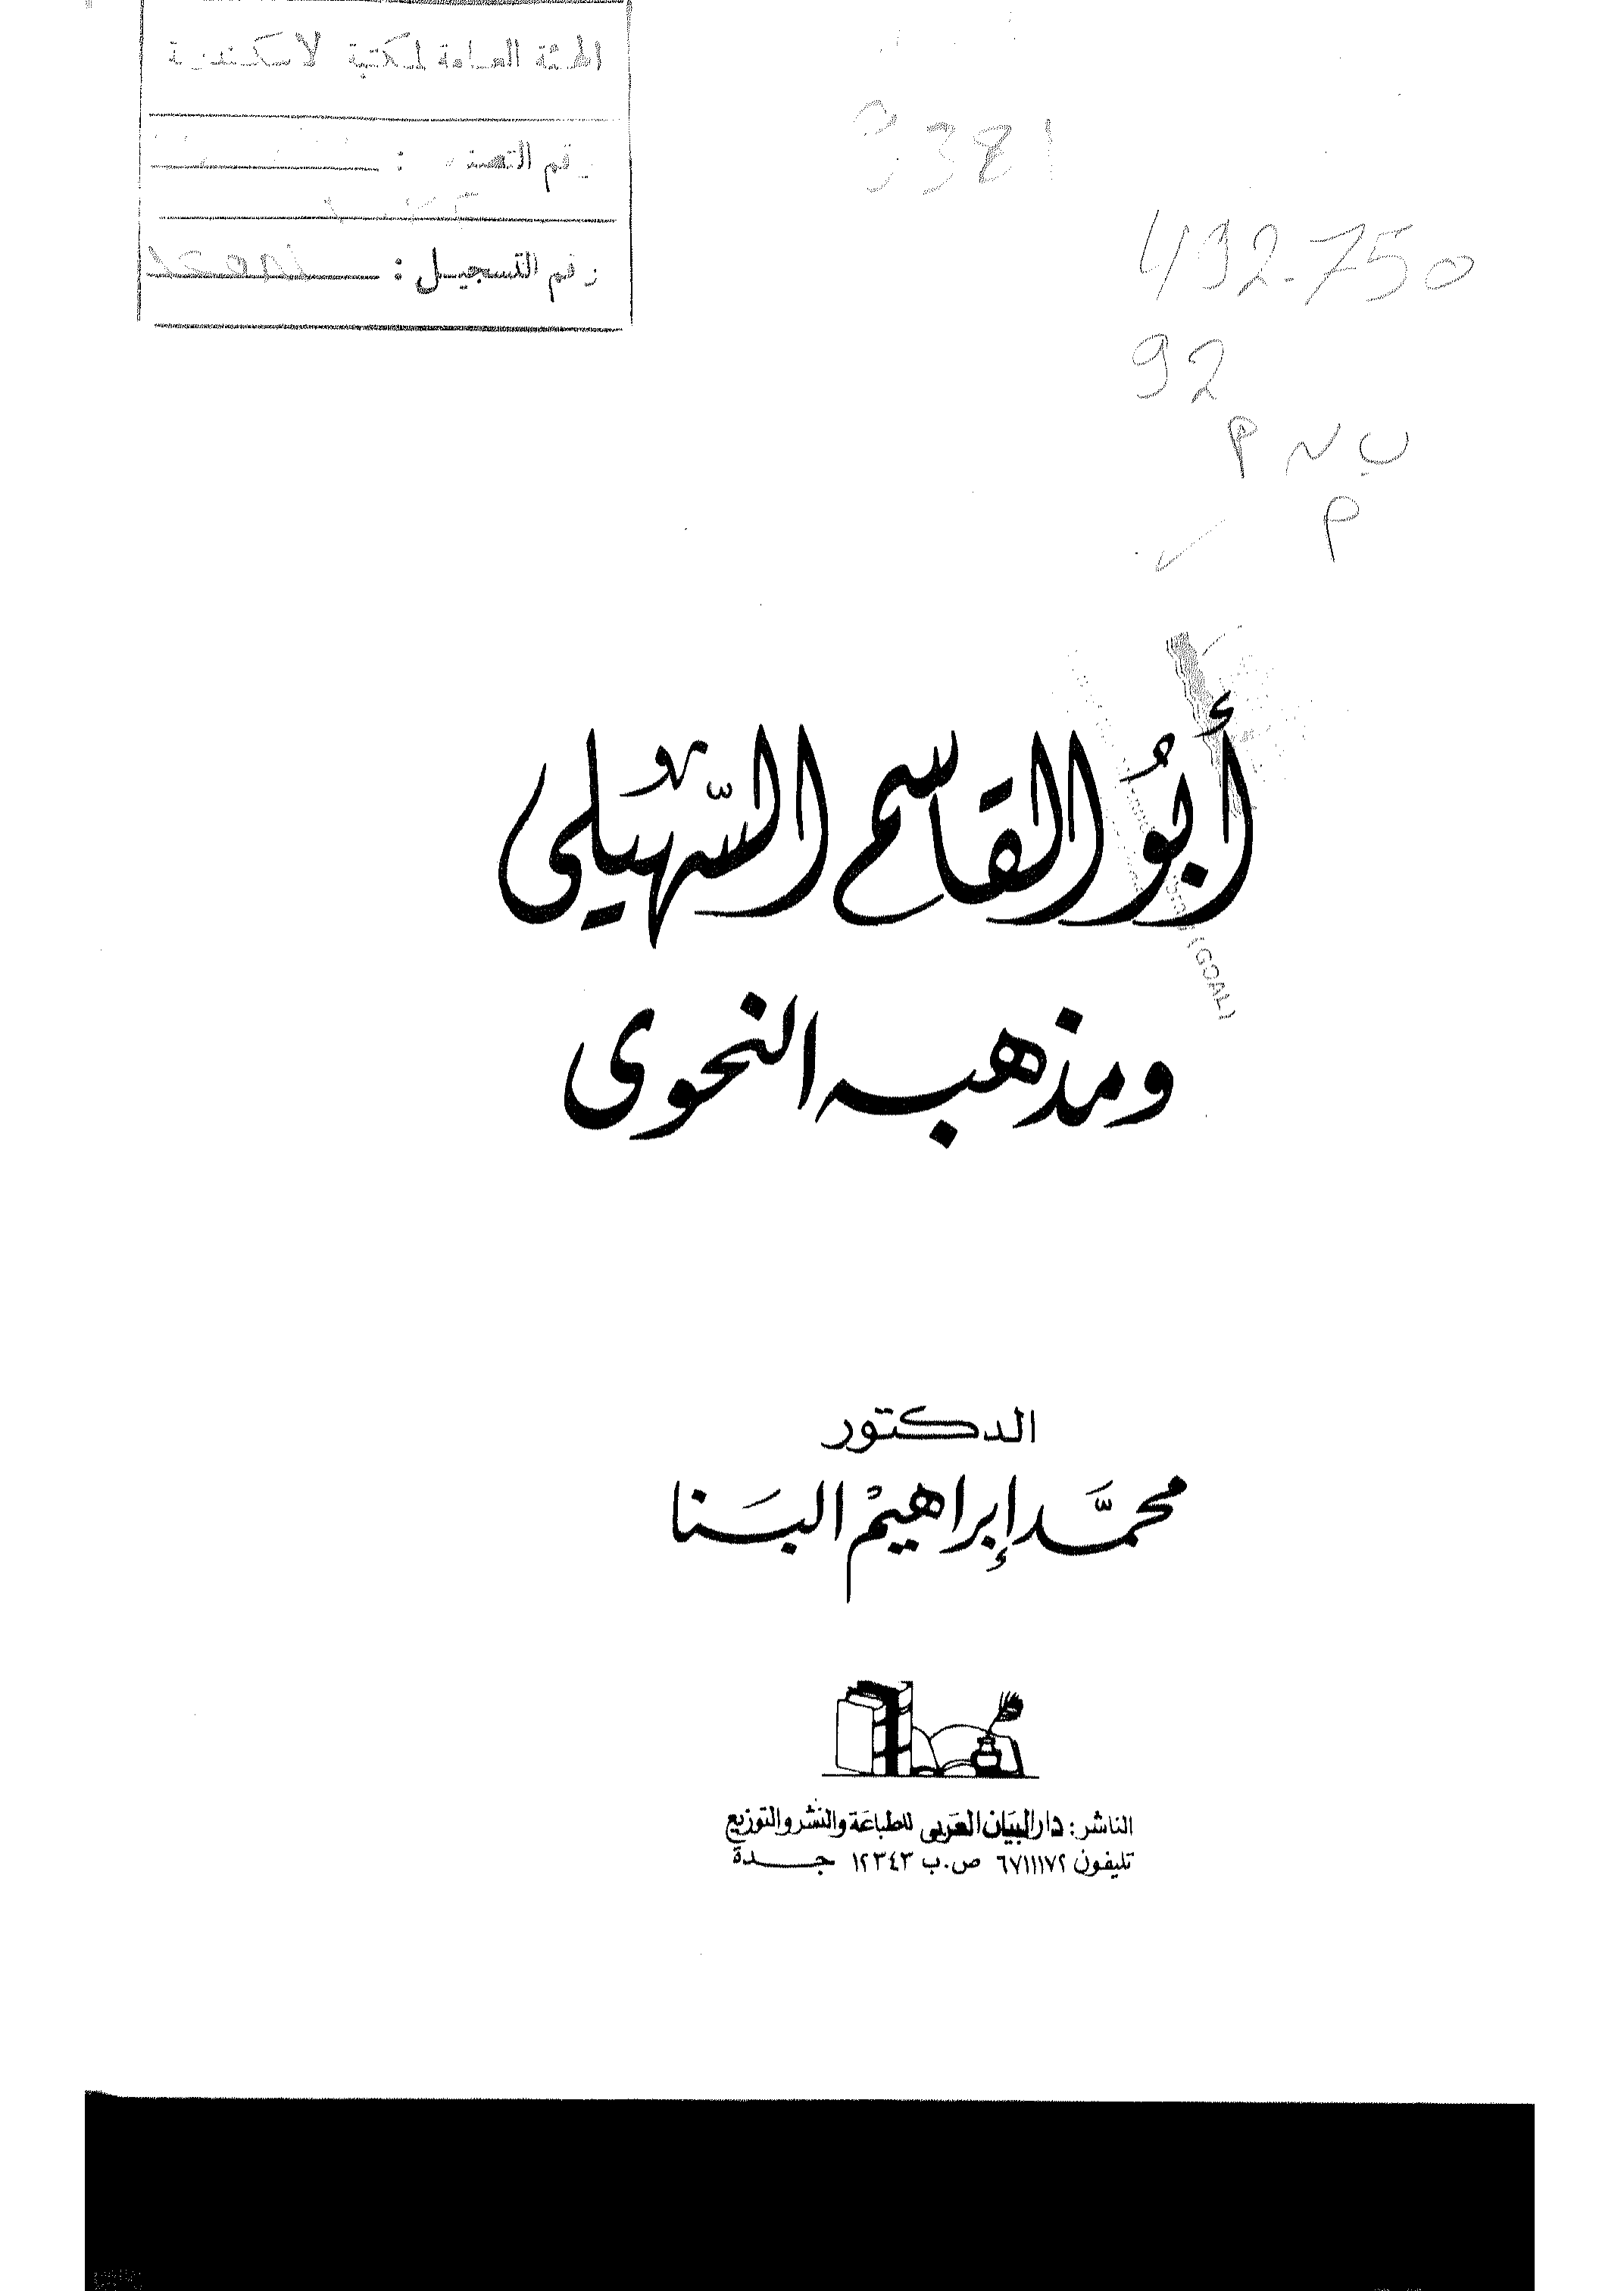 الهيئة العامة لمكتبة الاسكندرية
رقم التصنيف :
رقم التسجيل :
492.750
92
أبُو القاسم السّهيلى
ومذهبه النحوى
الدكتور
محمَّد إبراهيمْ البَنا
الناشر : دار البيَان العَربى للطباعَة والنشر والتوزيع
تليفون ٦٧١١١٧٢ ص.ب ١٢٣٤٣ جـــدة
(GOAL)